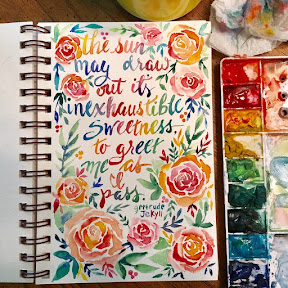 the sun
may draw
out its
inexhaustible
Sweetness
to greet
me as
I
pass.
gertrude
Jekyll